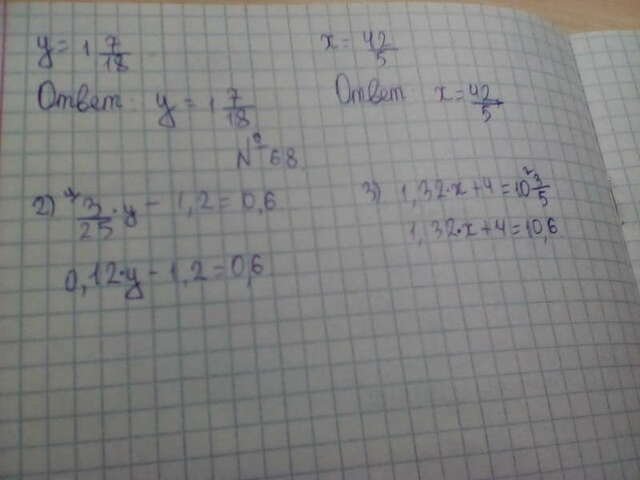 y = 1 7/18
Ответ: y = 1 7/18
x = 42/5
Ответ x = 42/5
№68
2) 3/25 · y - 1,2 = 0,6
0,12 · y - 1,2 = 0,6
3) 1,32 · x + 4 = 10 3/5
1,32 · x + 4 = 10,6